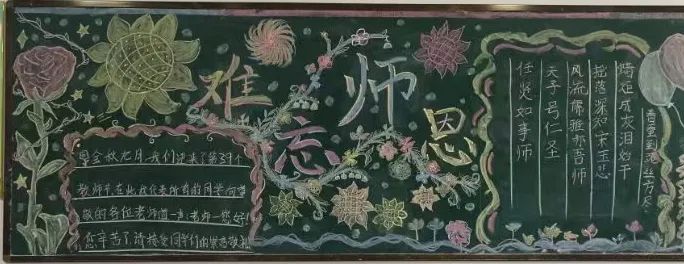 难忘师恩
金秋九月,我们迎来了第39个
教师节,在此我代表所有的同学向尊
敬的各位老师道一声:老师-您好!
您辛苦了,请接受同学们的崇高敬礼
春蚕到死丝方尽
蜡炬成灰泪始干
摇落深知宋玉悲
风流儒雅亦吾师
天子号仁圣
任贤如事师